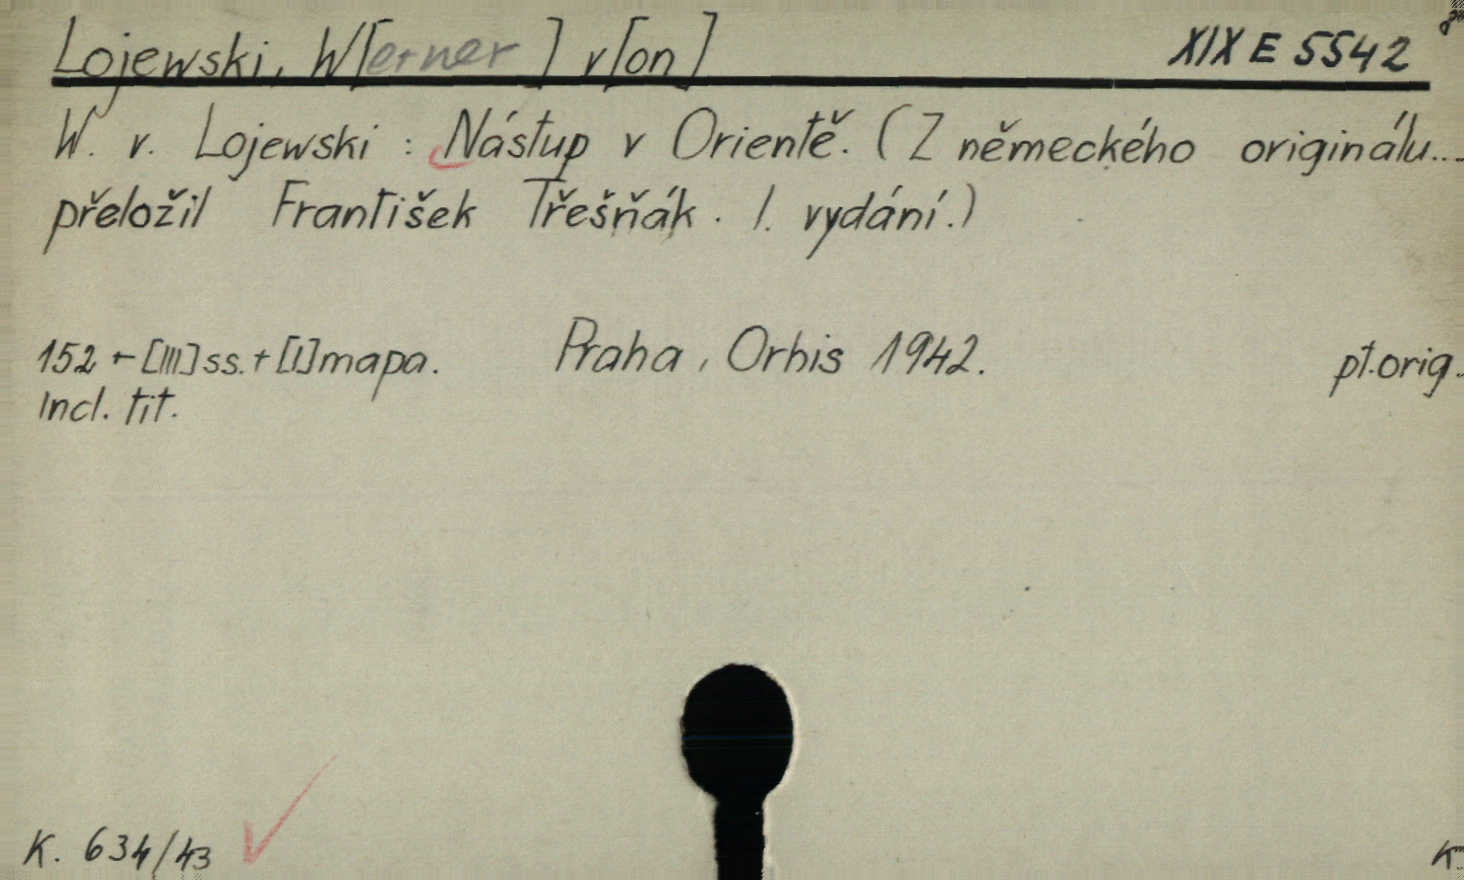 Lojewski, W[erner] v[on] XIX E 5542
W. v. Lojewski : Nástup v Orientě. (Z německého originálu...
přeložil František Třešňák. I. vydání.)
152 + [III] ss. + [I] mapa. Praha, Orbis 1942. pt. orig.
Incl. tit.
K. 634/43